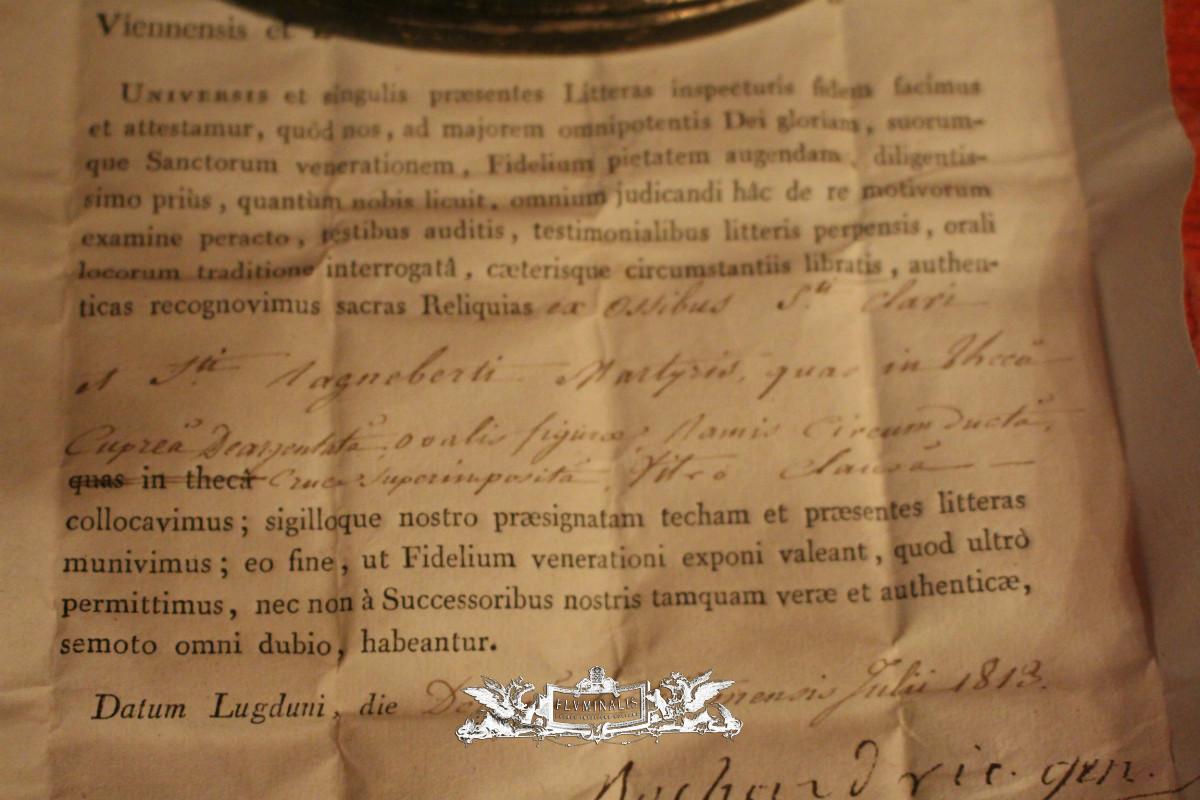 Viennensis et
UNIVERSIS et singulis præsentes Litteras inspecturis fidem facimus
et attestamur, quòd nos, ad majorem omnipotentis Dei gloriam, suorum-
que Sanctorum venerationem, Fidelium pietatem augendam, diligentis-
simo priùs, quantùm nobis licuit, omnium judicandi hâc de re motivorum
examine peracto, testibus auditis, testimonialibus litteris perpensis, orali
locorum traditione interrogatâ, cæterisque circumstantiis libratis, authen-
ticas recognovimus sacras Reliquias ex ossibus Sti Clari
et Sti Ragneberti Martyris, quas in thecâ
Cupreâ Deargentatâ, ovalis figuræ, Ramis Circumductâ,
quas in thecâ Cruce Superimpositâ, Vitro Clausâ
collocavimus; sigilloque nostro præsignatam thecam et præsentes litteras
munivimus; eo fine, ut Fidelium venerationi exponi valeant, quod ultrò
permittimus, nec non à Successoribus nostris tamquam veræ et authenticæ,
semoto omni dubio, habeantur.
Datum Lugduni, die mensis Julii 1813.
FLVMINALIS
vic. gen.